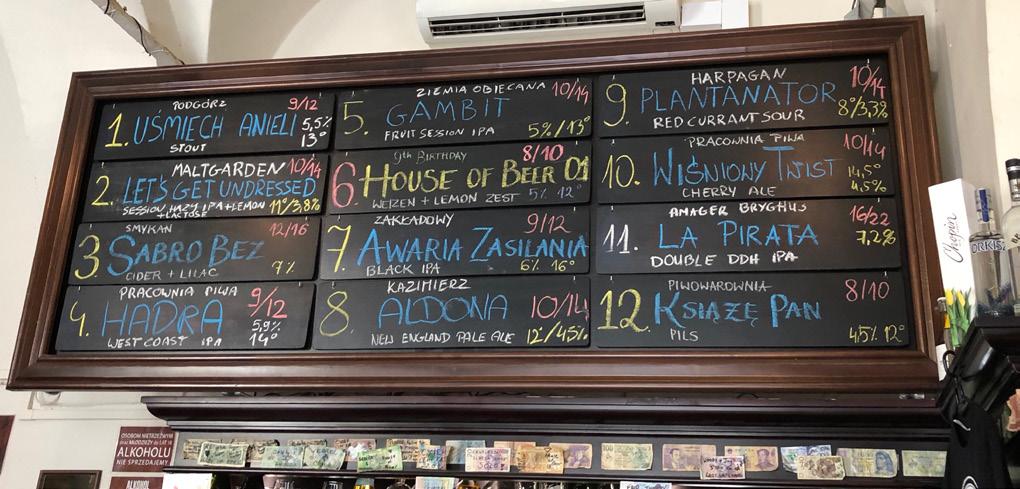 PODGÓRZ 9/12
1. UŚMIECH ANIELI 5,5%
STOUT 13°
MALTGARDEN 10/14
2. LET'S GET UNDRESSED
SESSION HAZY IPA + LEMON 11°/3,8%
+ LACTOSE
SMYKAN 12/16
3. SABRO BEZ
CIDER + LILAC 7%
PRACOWNIA PIWA 9/12
4. HADRA 5,9%
WEST COAST IPA 14°
ZIEMIA OBIECANA 10/14
5. GAMBIT
FRUIT SESSION IPA 5%/13°
9th BIRTHDAY 8/10
6. HOUSE OF BEER 01
WEIZEN + LEMON ZEST 5% 12°
ZAKŁADOWY 9/12
7. AWARIA ZASILANIA
BLACK IPA 6% 16°
KAZIMIERZ
8. ALDONA 10/14
NEW ENGLAND PALE ALE 12°/4,5%
HARPAGAN 10/14
9. PLANTANATOR
RED CURRANT SOUR 8°/3,3%
PRACOWNIA PIWA 10/14
10. WIŚNIOWY TWIST 14,5°
CHERRY ALE 4,5%
AMAGER BRYGHUS 16/22
11. LA PIRATA 7,2%
DOUBLE DDH IPA
PIWOWAROWNIA 8/10
12. KSIĄŻĘ PAN
PILS 4,5% 12°
Chopin
ORKISZ
OSOBOM NIETRZEŹWYM
oraz MŁODZIEŻY do LAT 18
ALKOHOLU
NIE SPRZEDAJEMY
ALKOHOL